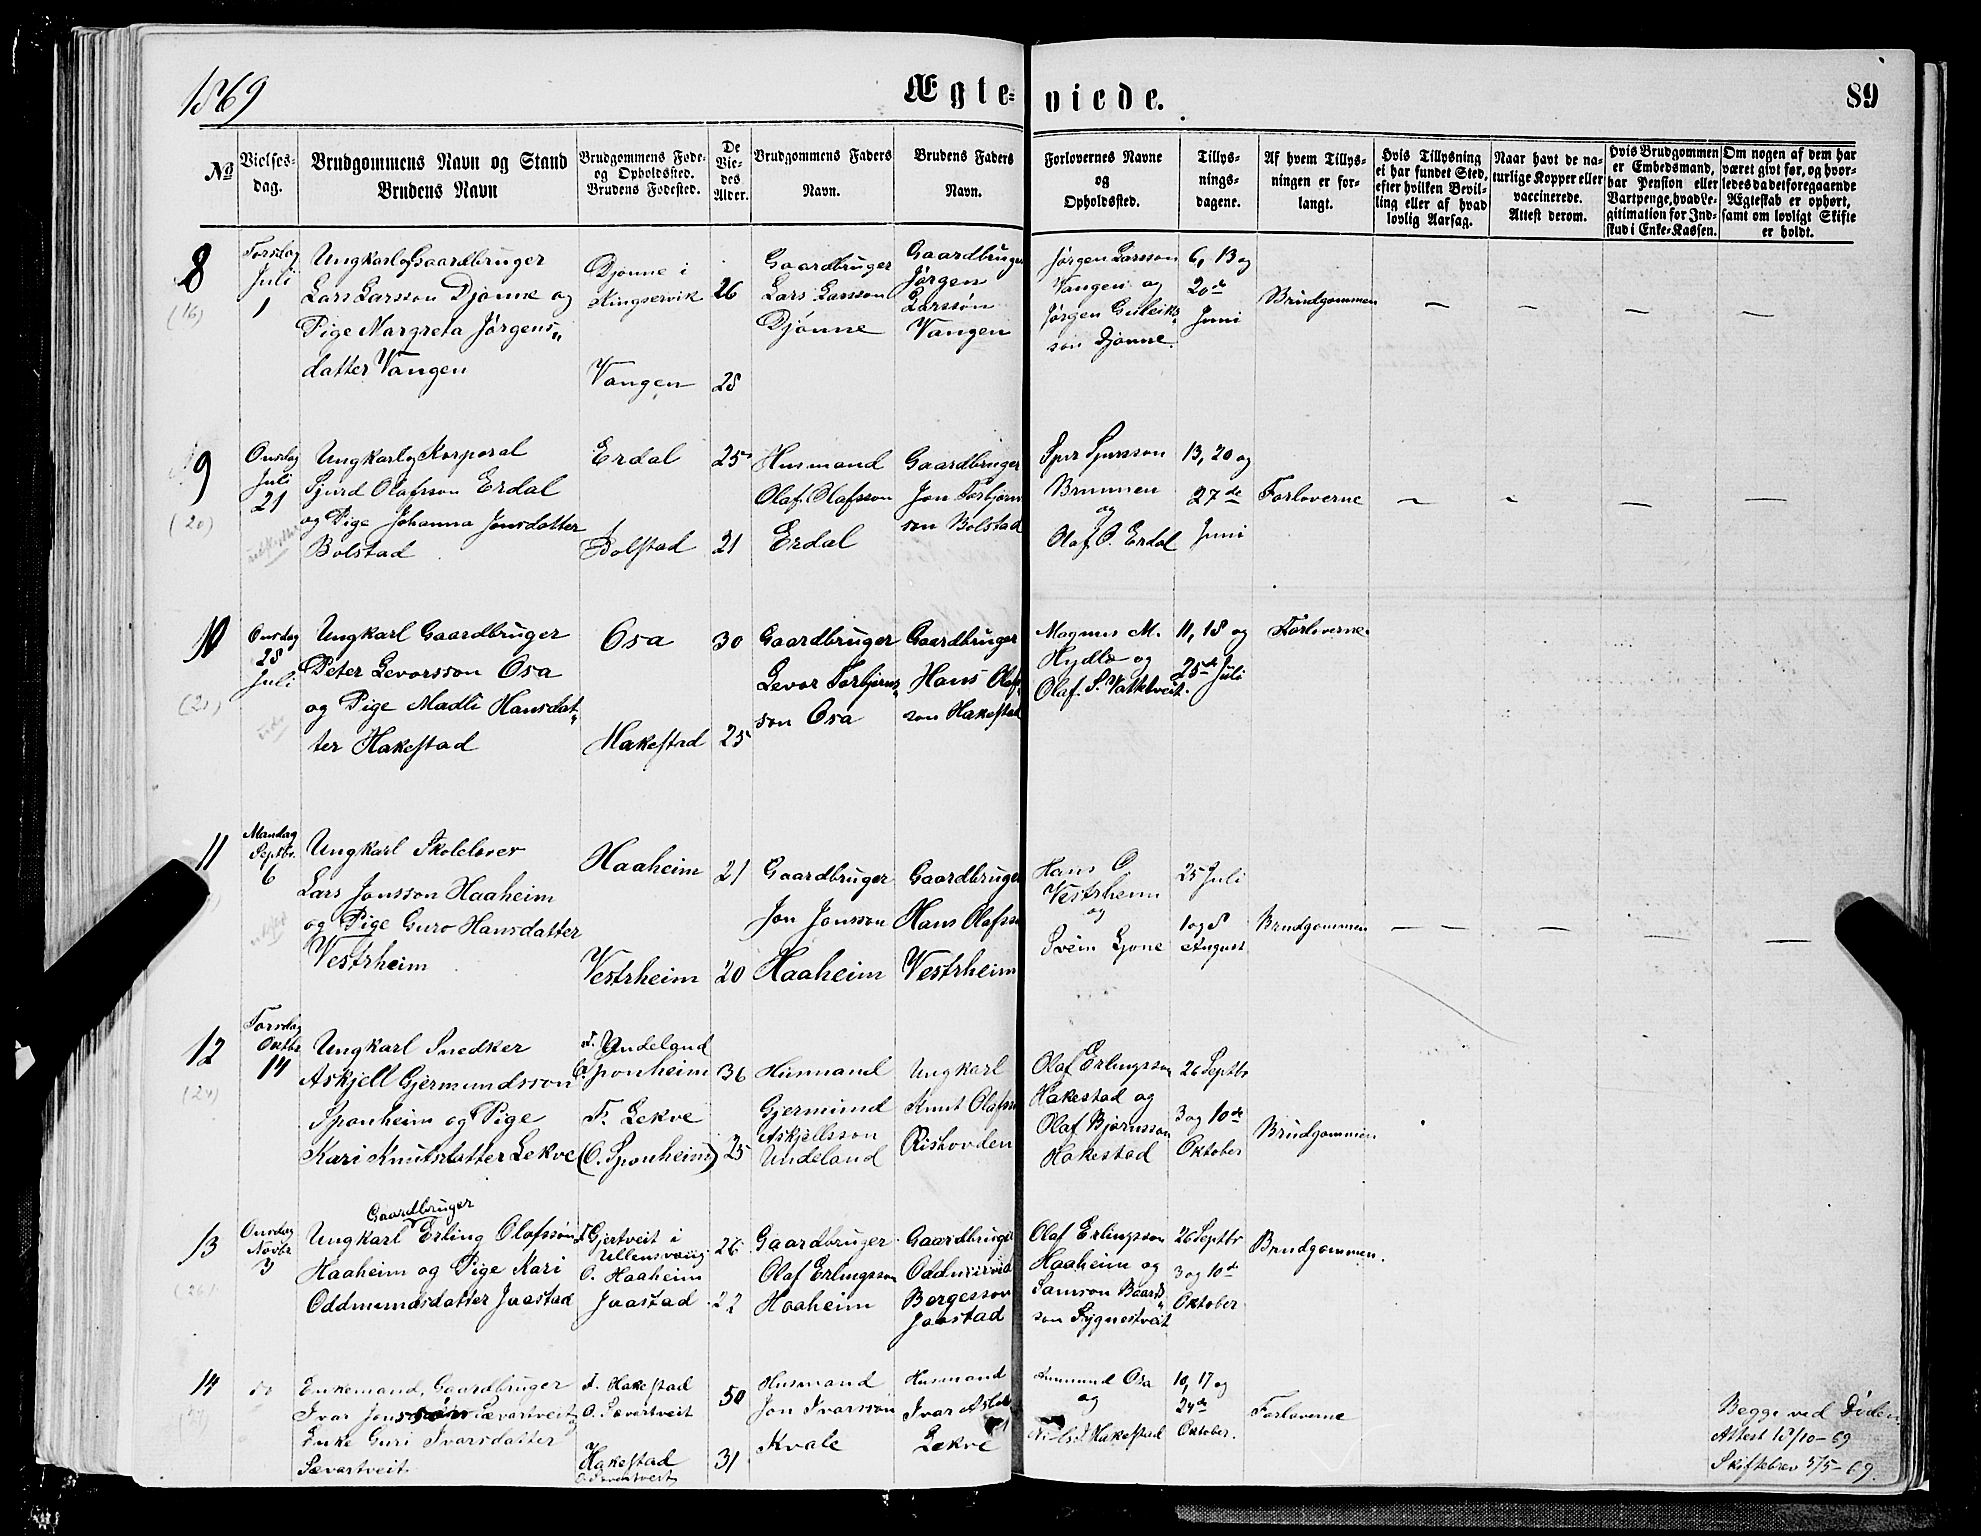 1869
Ægte-
viede.
89
No
Vielses-
dag.
Brudgommens Navn og Stand
Brudens Navn
Brudgommens Føde-
og Opholdssted.
Brudens Fødested.
De
Vie-
des
Alder.
Brudgommens Faders
Navn.
Brudens Faders
Navn.
Forlovernes Navne
og
Opholdssted.
Tillys-
nings-
dagene.
Af hvem Tillys-
ningen er for-
langt.
Hvis Tillysning
ei har fundet Sted,
efter hvilken Bevil-
ling eller af hvad
lovlig Aarsag.
Naar havt de na-
turlige Kopper eller
vaccinerede.
Attest derom.
Hvis Brudgommen
er Embedsmand,
har Pension eller
Vartpenge, hvad Le-
gitimation for Ind-
skud i Enke-Kassen.
Om nogen af dem har
været givt før, og hvor-
ledes da det foregaaende
Ægteskab er ophørt,
samt om lovligt Skifte
er holdt.
8
(16)
Torsdag
Juli
1
Ungkarl og Gaardbruger
Lars Larsson Djønne og
Pige Margreta Jørgens„
datter Vangen
Djønne i
Kingservik
Vangen
26
28
Gaardbruger
Lars Larsson
Djønne
Gaardbruger
Jørgen
Larssøn
Vangen
Jørgen Larsson
Vangen og
Jørgen Guleiks„
son Djønne.
6, 13 og
20de
Juni
Brudgommen
— — — —
9
(20)
Onsdag
Juli
21
Ungkarl og Korporal
Sjurd Olafsson Erdal
og Pige Johanna Jonsdatter
Bolstad
Erdal
Bolstad
25
21
Husmand
Olaf Olafsson
Erdal
Gaardbruger
Jon Torbjørn
son Bolstad
Sjur Sjursson
Brunnen
og
Olaf O. Erdal
13, 20 og
27de
Juni
Forloverne
— — — —
10
(21)
Onsdag
28
Juli
Ungkarl Gaardbruger
Peter Levorsson Osa
og Pige Madli Hansdat„
ter Hakestad
Osa
Hakestad
30
25
Gaardbruger
Levor Torbjørns„
son Osa
Gaardbruger
Hans Olaf„
son Hakestad
Magnus M.
Hydle og
Olaf S. Vatletveit.
11, 18 og
25de Juli
Forloverne
11
Mandag
Septbr.
6
Ungkarl Skolelærer
Lars Jonsson Haaheim
og Pige Guro Hansdatter
Vestrheim
Haaheim
Vestrheim
21
20
Gaardbruger
Jon Jonsson
Haaheim
Gaardbruger
Hans Olafsson
Vestrheim
Hans O
Vestrheim
og
Svein Ljone
25 Juli
1 og 8
August
Brudgommen
— — — — —
12
(24)
Torsdag
Oktbr
14
Ungkarl Snedker
Askjell Gjermundsson
Sponheim og Pige
Kari Knutsdatter Lekve
F. Undeland
O. Sponheim
F. Lekve
(O. Sponheim)
36
25
Husmand
Gjermund
Askjellsson
Undeland
Ungkarl
Knut Olafsson
Ristovden
Olaf Erlingsson
Hakestad og
Olaf Bjørnsson
Hakestad
26 Septbr
3 og 10de
Oktober
Brudgommen
13
(26)
Onsdag
Novbr
3
Gaardbruger
Ungkarl Erling Olafsson
Haaheim og Pige Kari
Oddmundsdatter Jaastad
F. Gjertveit i
Ullensvang
O. Haaheim
Jaastad
26
22
Gaardbruger
Olaf Erlingsson
Haaheim
Gaardbruger
Oddmund
Børgesson
Jaastad
Olaf Erlingsson
Haaheim og
Samson Baards„
son Sygnestveit
26 Septbr
3 og 10de
Oktober
Brudgommen.
14
do
Enkemand, Gaardbruger
Ivar Jonsson Sævartveit
Enke Guri Ivarsdatter
Sævartveit
F. Hakestad
O. Sævartveit
Hakestad
O. Sævartveit
50
31
Husmand
Jon Ivarsson
Kvale
Husmand
Ivar
Lekve
Amund Osa
og
Hakestad
10, 17 og
24de
Oktober.
Forloverne
Begge ved Døden
Attest 13/10-69
Skiftebrev 5/5-69.